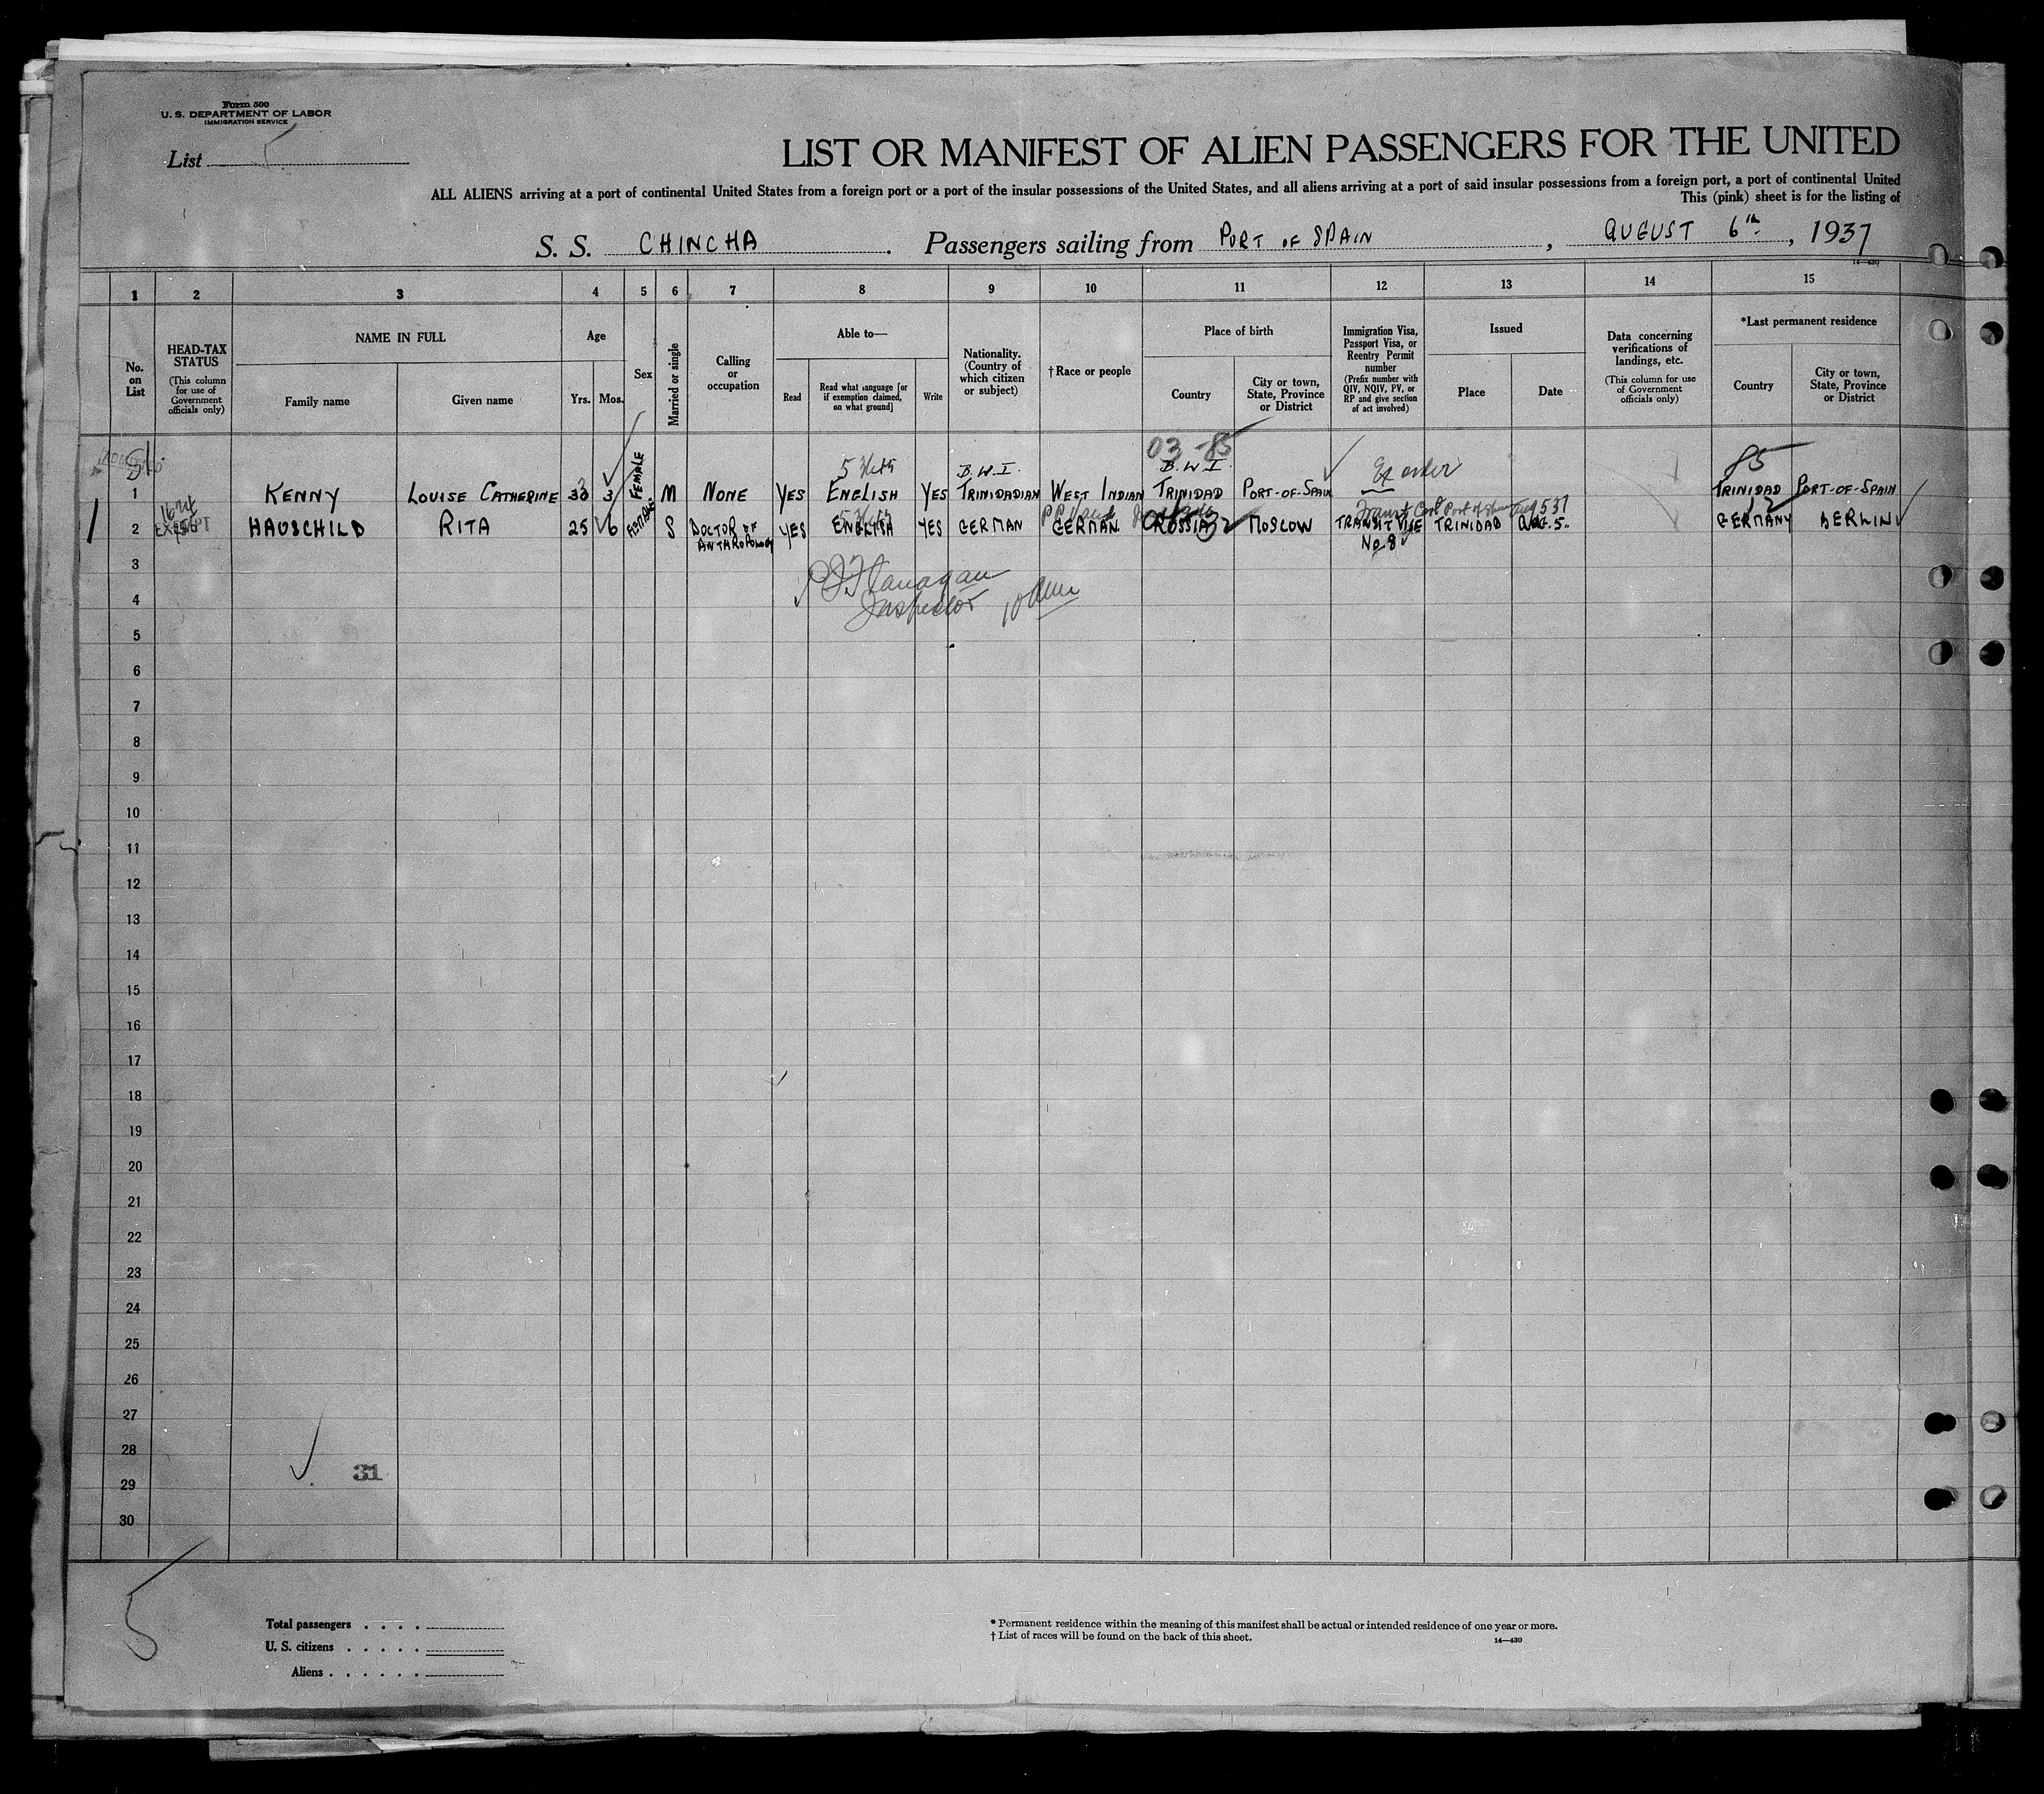 Form 500
U. S. DEPARTMENT OF LABOR
IMMIGRATION SERVICE
List 5
LIST OR MANIFEST OF ALIEN PASSENGERS FOR THE UNITED
ALL ALIENS arriving at a port of continental United States from a foreign port or a port of the insular possessions of the United States, and all aliens arriving at a port of said insular possessions from a foreign port, a port of continental United
This (pink) sheet is for the listing of
S. S. CHINCHA. Passengers sailing from PORT OF SPAIN, AUGUST 6th, 1937
14—430
1 2 3 4 5 6 7 8 9 10 11 12 13 14 15
No. on List
HEAD-TAX STATUS
(This column for use of Government officials only)
NAME IN FULL
Family name
Given name
Age
Yrs. Mos.
Sex
Married or single
Calling or occupation
Able to—
Read
Read what language [or if exemption claimed, on what ground]
Write
Nationality. (Country of which citizen or subject)
†Race or people
Place of birth
Country
City or town, State, Province or District
Immigration Visa, Passport Visa, or Reentry Permit number
(Prefix number with QIV, NQIV, PV, or RP and give section of act involved)
Issued
Place
Date
Data concerning verifications of landings, etc.
(This column for use of Government officials only)
*Last permanent residence
Country
City or town, State, Province or District
03-85
B.W.I. B.W.I. 85
1 KENNY LOUISE CATHERINE 33 3 FEMALE M NONE YES ENGLISH YES TRINIDADIAN WEST INDIAN TRINIDAD PORT-OF-SPAIN TRINIDAD PORT-OF-SPAIN
2 EXEMPT HAUSCHILD RITA 25 6 FEMALE S DOCTOR OF ANTHROPOLOGY YES ENGLISH YES GERMAN GERMAN RUSSIA MOSCOW TRANSIT VISE No. 8 TRINIDAD AUG. 5. GERMANY BERLIN
3
Flanagan
4
Inspector
5
6
7
8
9
10
11
12
13
14
15
16
17
18
19
20
21
22
23
24
25
26
27
28
31
29
30
5
Total passengers
U. S. citizens
Aliens
* Permanent residence within the meaning of this manifest shall be actual or intended residence of one year or more.
† List of races will be found on the back of this sheet.
14—430